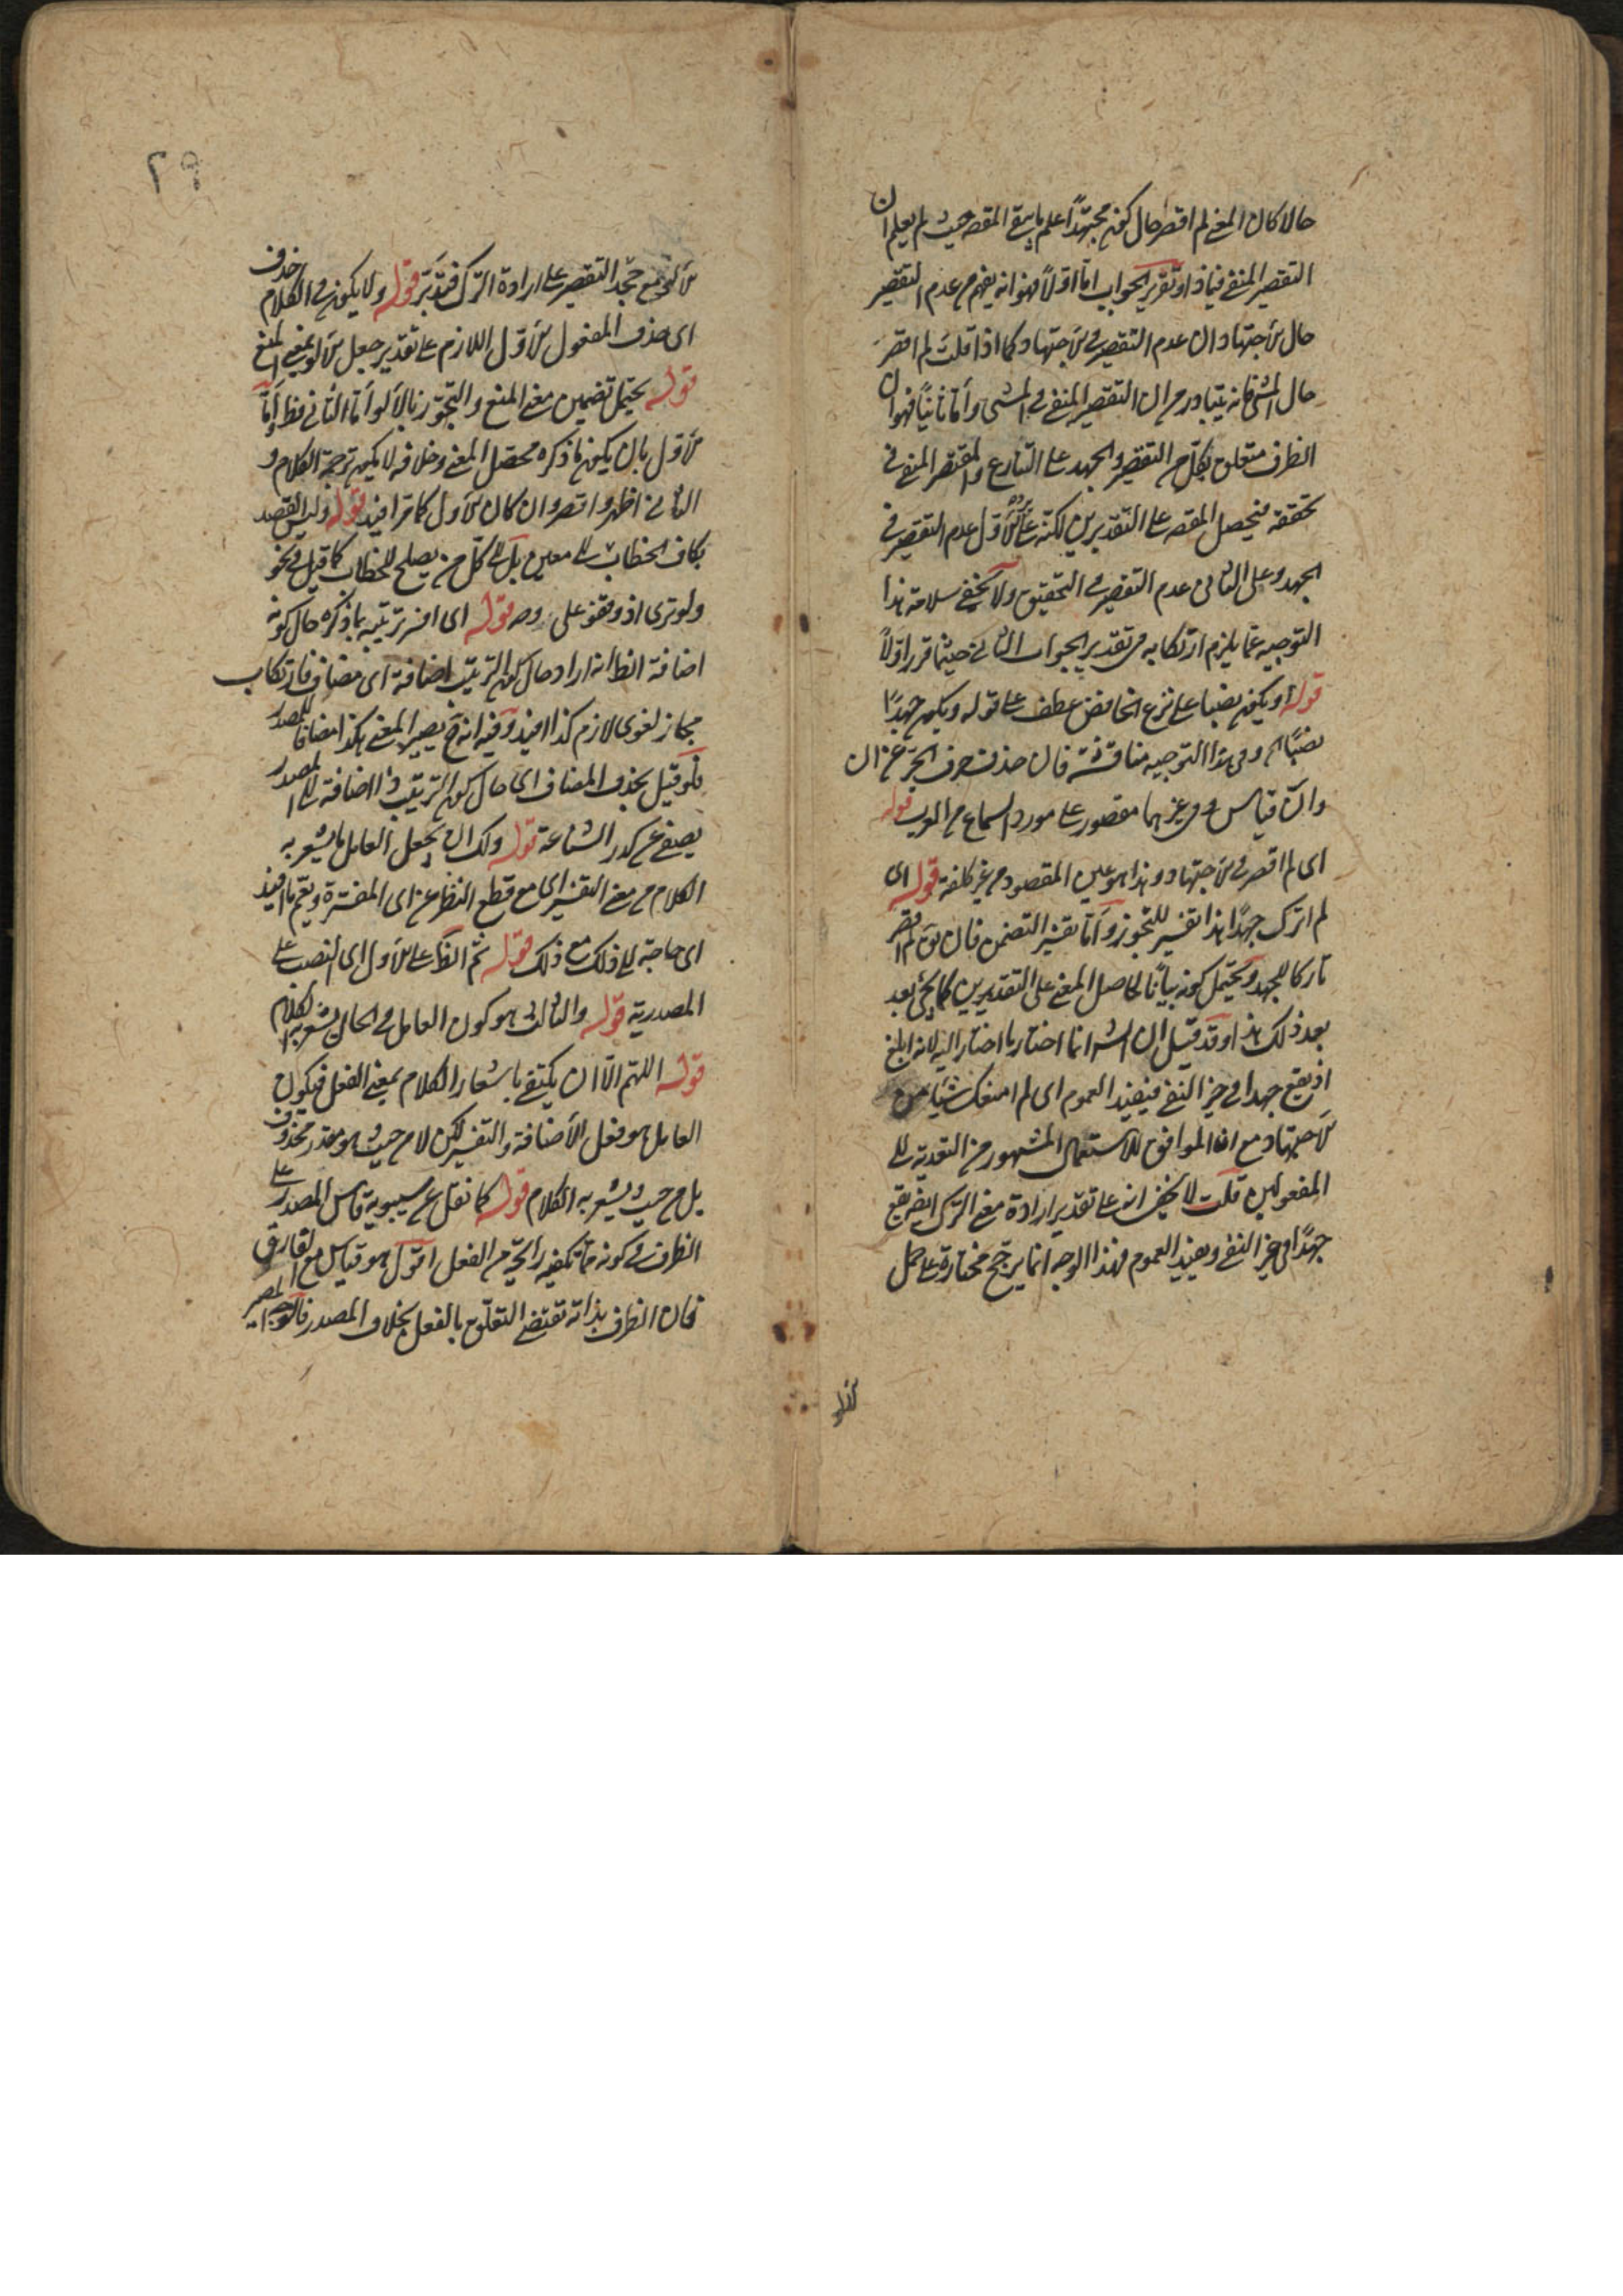 حالا كان المعنى لم اقصر حال كونى مجتهدًا علم ما سبق المقصـ حيث لم يعلم ان
التقصير المنفى فيما ذا وتقرير الجواب امّا اوّلاً فهو انه يفهم من عدم التقصير
حال الاجتهاد ان عدم التقصير فى الاجتهاد كما اذا قلت لم اقصر
حال المشى فانه يتبادر منه ان التقصير المنفى فى المشى وأمّا ثانيًا فهو ان
الظرف متعلق بكل من التقصير والجهد على التنازع والمقتصر المنفى
تحققه فيحصل المقصـ على التقديرين لكنه على الاوّل عدم التقصير فى
الجهد وعلى الثانى عدم التقصير فى التحقيق ولا يخفى سلامة هذا
التوجيه عمّا يلزم ارتكابه من تقدير الجواب الثانى حيثما قرر اوّلاً
قوله او يكون نصبها على نزع الخافض عطف على قوله ويكون جهدًا
نصبًا اه وفى هذا التوجيه مناقشة فان حذف حرف الجرّ عن ان
وانّ قياس وفى غيرهما مقصور على مورد السماع من العرب قوله
اى لم اقصر فى الاجتهاد وهذا هو عين المقصود من غير كلفة قوله اى
لم اترك جهدًا هذا تفسير للتجوز وأمّا تفسير التضمن فان يق لم اقصر
تاركا للجهد ويحتمل كونه بيانًا لحاصل المعنى على التقديرين كما يجئ بعد
بعد ذلك هذا وقد قيل ان الشـ انما اختار ما اختار اليه لانه ابلغ
اذ يقع جهدا فى حيز النفى فيفيد العموم اى لم امنعك شيئا من
الاجتهاد مع انه الموافق للاستعمال المشهور من التعدية الى
المفعولين قلت لا يخفى انه على تقدير ارادة معنى الترك ايضا يقع
جهدًا فى حيز النفى ويفيد العموم فهذا الوجه انما يرجّح مختاره على حمل
٢٩
الالو مع جحد التقصير على ارادة الترك فتدبّر قوله ولا يكون فى الكلام حذف
اى حذف المفعول الاوّل اللازم على تقدير جعل الالو بمعنى المنع
قوله يحتمل تضمين معنى المنع والتجوّز بالألو أمّا الثانى فظ وأمّا
الاوّل بان يكون ما ذكره محصّل المعنى وخلافه لا يكون ترجمة الكلام و
الثانى اظهر واقصر وان كان الاول كما مرّ افيد قوله وليس القصد
بكاف الخطاب الى معين بل الى كلّ من يصلح للخطاب كما قيل فى نحو
ولو ترى اذ وقفوا على قوله اى افسر ترتيبه بما ذكره حال كونه
اضافة الظـ انه اراد حال كون الترتيب اضافة اى مضاف فارتكاب
مجاز لغوى لازم كذا افيد وفيه انه ح يصير المعنى هكذا مضافا للمصدر
فلو قيل بحذف المضاف اى حال كون الترتيب ذا اضافة الى المصدر
يصفى عن كدر الشناعة قوله ولك ان يجعل العامل ما يشعر به
الكلام من معنى التفسير اى مع قطع النظر عن اى المفسّرة ويتم ما افيد
اى حاجة الى ذلك مع ذلك قوله ثم الظـ على الاول اى النصب على
المصدرية قوله والثالث هو كون العامل فى الحال يشعر به الكلام
قوله اللهم الا ان يكتفى باشعار الكلام بمعنى الفعل فيكون
العامل هو فعل الأضافة والتفسير لكن لا من حيث هو مقدر محذوف
بل من حيث يشعر به الكلام قوله كما نقل عن سيبويه قاس المصدر على
الظرف فى كونه ممّا تكفيه رايحة من الفعل اقول هو قياس مع الفارق
فان الظرف بذاته تقتضى التعلّق بالفعل بخلاف المصدر فالوجه المصير